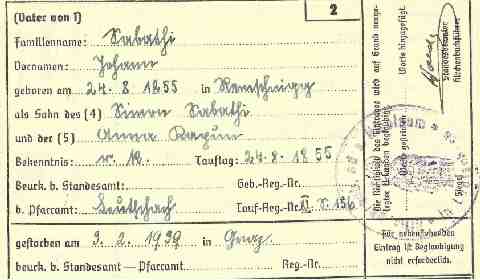 (Vater von 1)
2
Familienname: Sabathi
Vornamen: Johann
geboren am 24.8.1855 in Remschnigg
als Sohn des (4) Simon Sabathi
und der (5) Anna
Bekenntnis: r. k. Tauftag: 24.8.1855
Beurk. b. Standesamt: Geb.-Reg.-Nr.
b. Pfarramt: Leutschach Tauf-Reg.-Nr. 136
gestorben am 3.2.1939 in Graz
beurk. b. Standesamt — Pfarramt Reg.-Nr.
Die Richtigkeit des Eintrages wird auf Grund vorge-
legter Urkunden bestätigt.
Worte gestrichen
Worte hinzugefügt.
Standesbeamter
Kirchenbuchführer
(Siegel)
Für nebenstehenden
Eintrag ist Beglaubigung
nicht erforderlich.